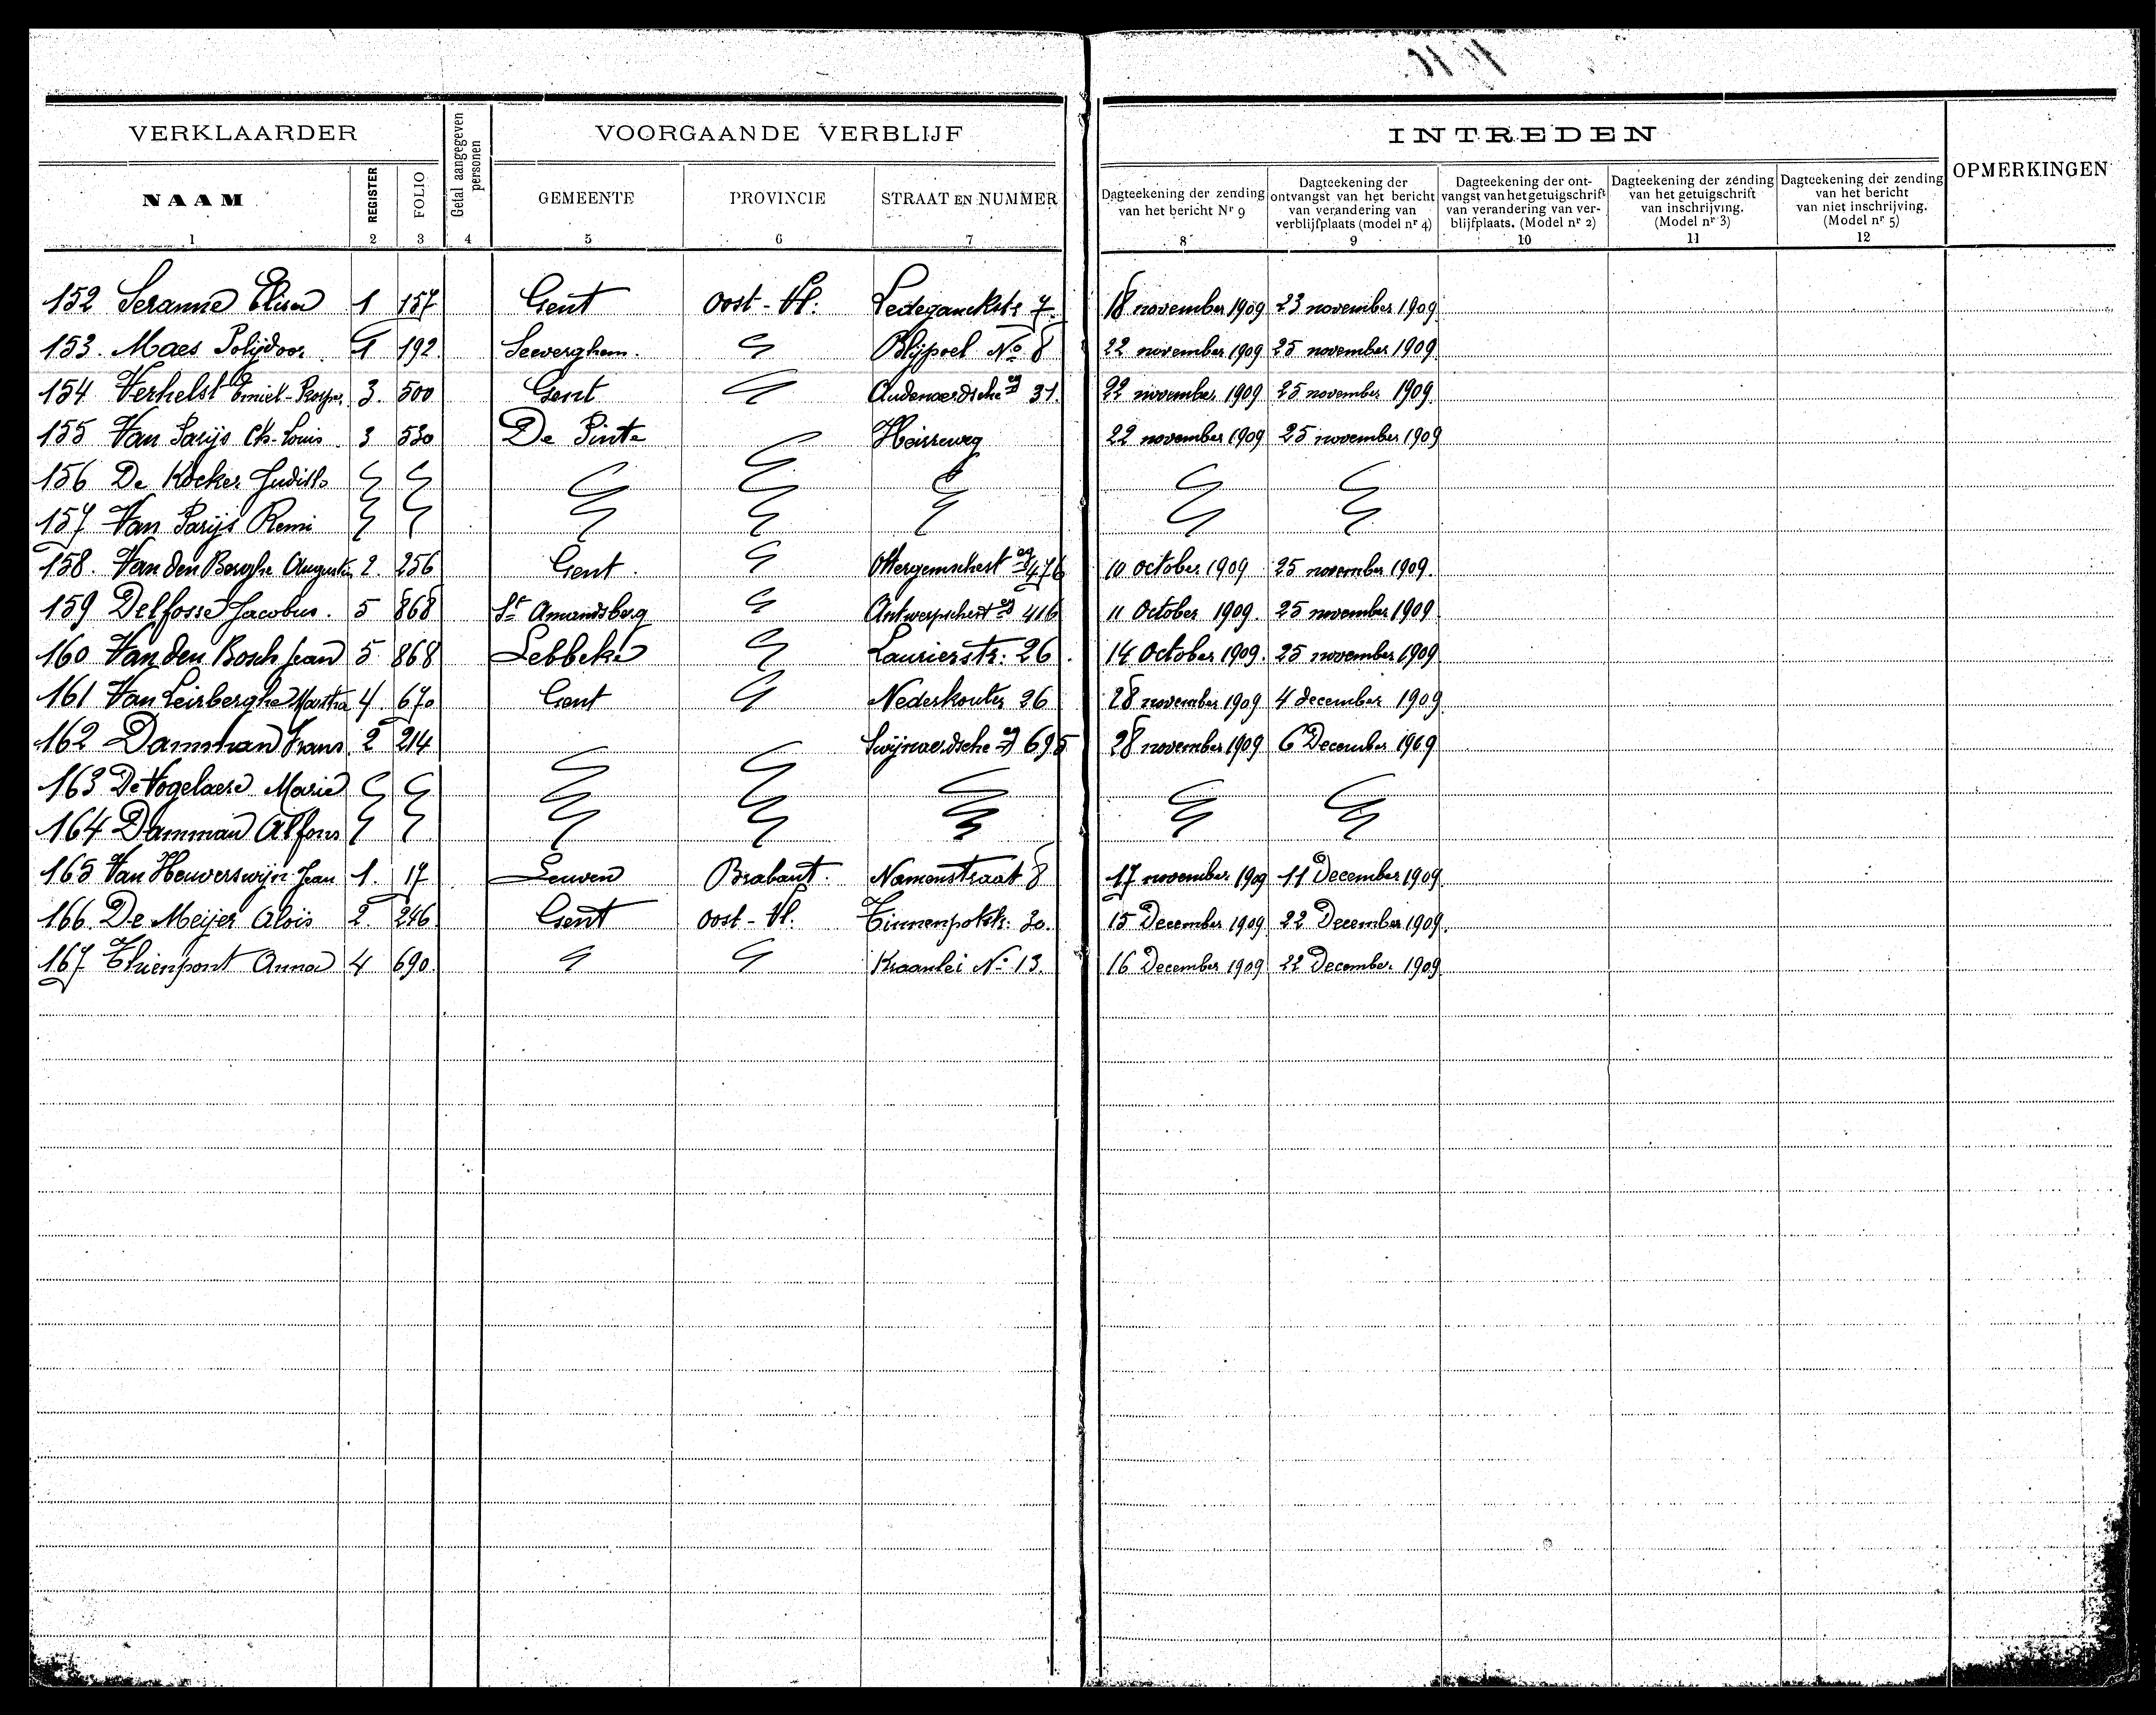 VERKLAARDER Getal aangegeven personen VOORGAANDE VERBLIJF INTREDEN OPMERKINGEN
NAAM REGISTER FOLIO GEMEENTE PROVINCIE STRAAT EN NUMMER
Dagteekening der zending van het bericht Nr 9
Dagteekening der ontvangst van het bericht van verandering van verblijfplaats (model nr 4)
Dagteekening der ontvangst van het getuigschrift van verandering van verblijfplaats. (Model nr 2)
Dagteekening der zending van het getuigschrift van inschrijving. (Model nr 3)
Dagteekening der zending van het bericht van niet inschrijving. (Model nr 5)
1 2 3 4 5 6 7 8 9 10 11 12
152 Seranne Elisa 1 157 Gent Oost-Vl. Ledeganckstr 7 18 november 1909 23 november 1909
153. Maes Polijdoor 1 192 Seeverghem. Blijpoel No 8 22 november 1909 25 november 1909
154 Verhelst Emiel-Prosper 3. 500 Gent 31 22 november 1909 25 november 1909
155 Van Parijs Ch. Louis 3 530 De Pinte 22 november 1909 25 november 1909
156 De Kocker Judith
157 Van Parijs Remi
158. Van den Berghe 2. 256 Gent. 476 10 october 1909 25 november 1909.
159 Delfosse Jacobus. 5 868 St Amandsberg 416 11 October 1909. 25 november 1909
160 Van den Bosch Jean 5 868 Lebbeke Laurierstr: 26 14 October 1909. 25 november 1909
161 Van Leirberghe Martha 4. 670 Gent Nederkouter 26 28 november 1909 4 december 1909
162 Damman Frans 2 214 695 28 november 1909 6 December 1909
163 De Vogelaere Marie
164 Damman Alfons
165 Van Heuverswijn Jean 1. 17 Leuven Brabant. Namenstraat 8 17 november 1909 11 December 1909
166. De Meijer Aloïs 2. 246 Gent Oost-Vl. 15 December 1909 22 December 1909.
167 Thienpont Anna 4 690 Kraanlei No 13. 16 December 1909 22 December 1909